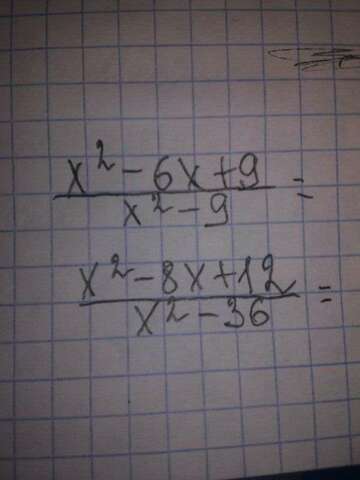 x² - 6x + 9
x² - 9 =
x² - 8x + 12
x² - 36 =